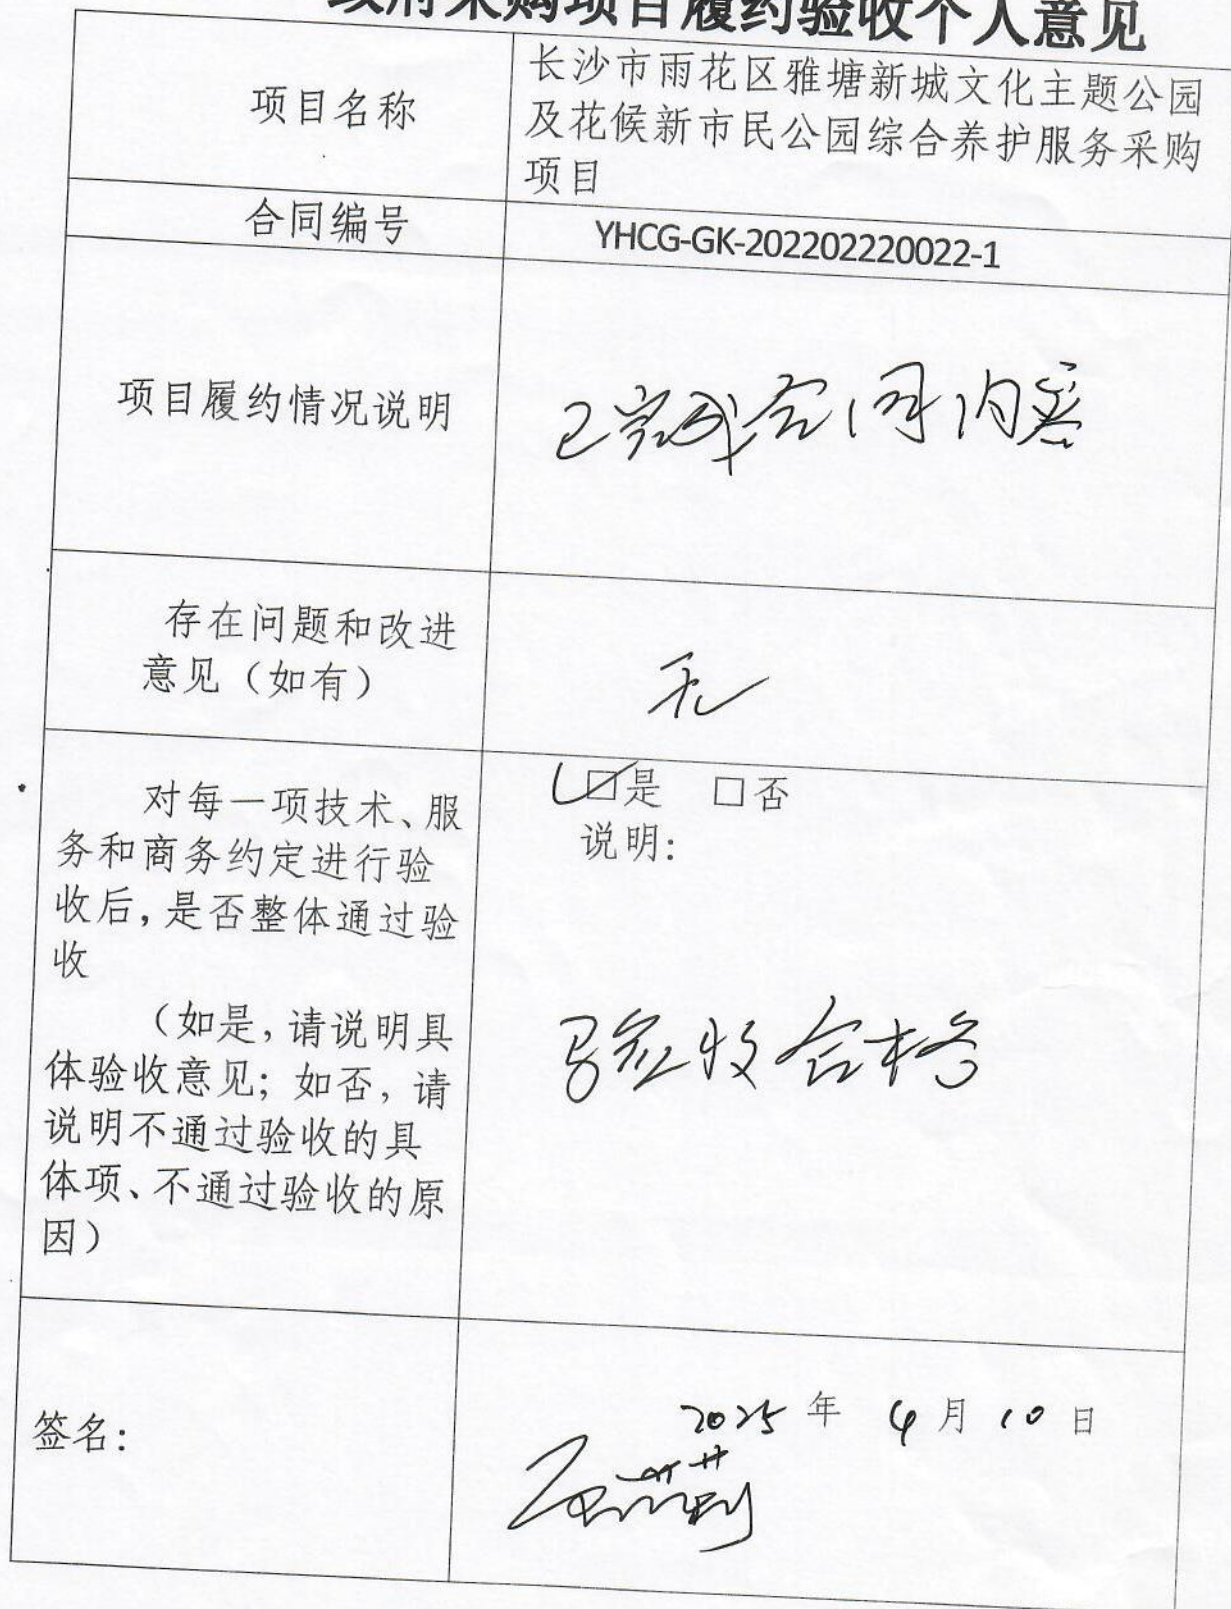 政府采购项目履约验收个人意见
项目名称
长沙市雨花区雅塘新城文化主题公园
及花候新市民公园综合养护服务采购
项目
合同编号
YHCG-GK-202202220022-1
项目履约情况说明
已完成合同内容
存在问题和改进
意见（如有）
无
对每一项技术、服
务和商务约定进行验
收后，是否整体通过验
收
（如是，请说明具
体验收意见；如否，请
说明不通过验收的具
体项、不通过验收的原
因）
☑是 □否
说明：
验收合格
签名：
2025年 4月10日